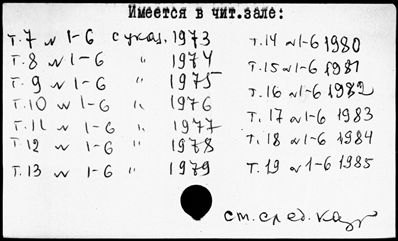 Имеется в чит.зале:
т.7 № 1-6 с указ. 1973
т.8 № 1-6 " 1974
т.9 № 1-6 " 1975
т.10 № 1-6 " 1976
т.11 № 1-6 " 1977
т.12 № 1-6 " 1978
т.13 № 1-6 " 1979
т.14 № 1-6 1980
т.15 № 1-6 1981
т.16 № 1-6 1982
т.17 № 1-6 1983
т.18 № 1-6 1984
т.19 № 1-6 1985
см. след.